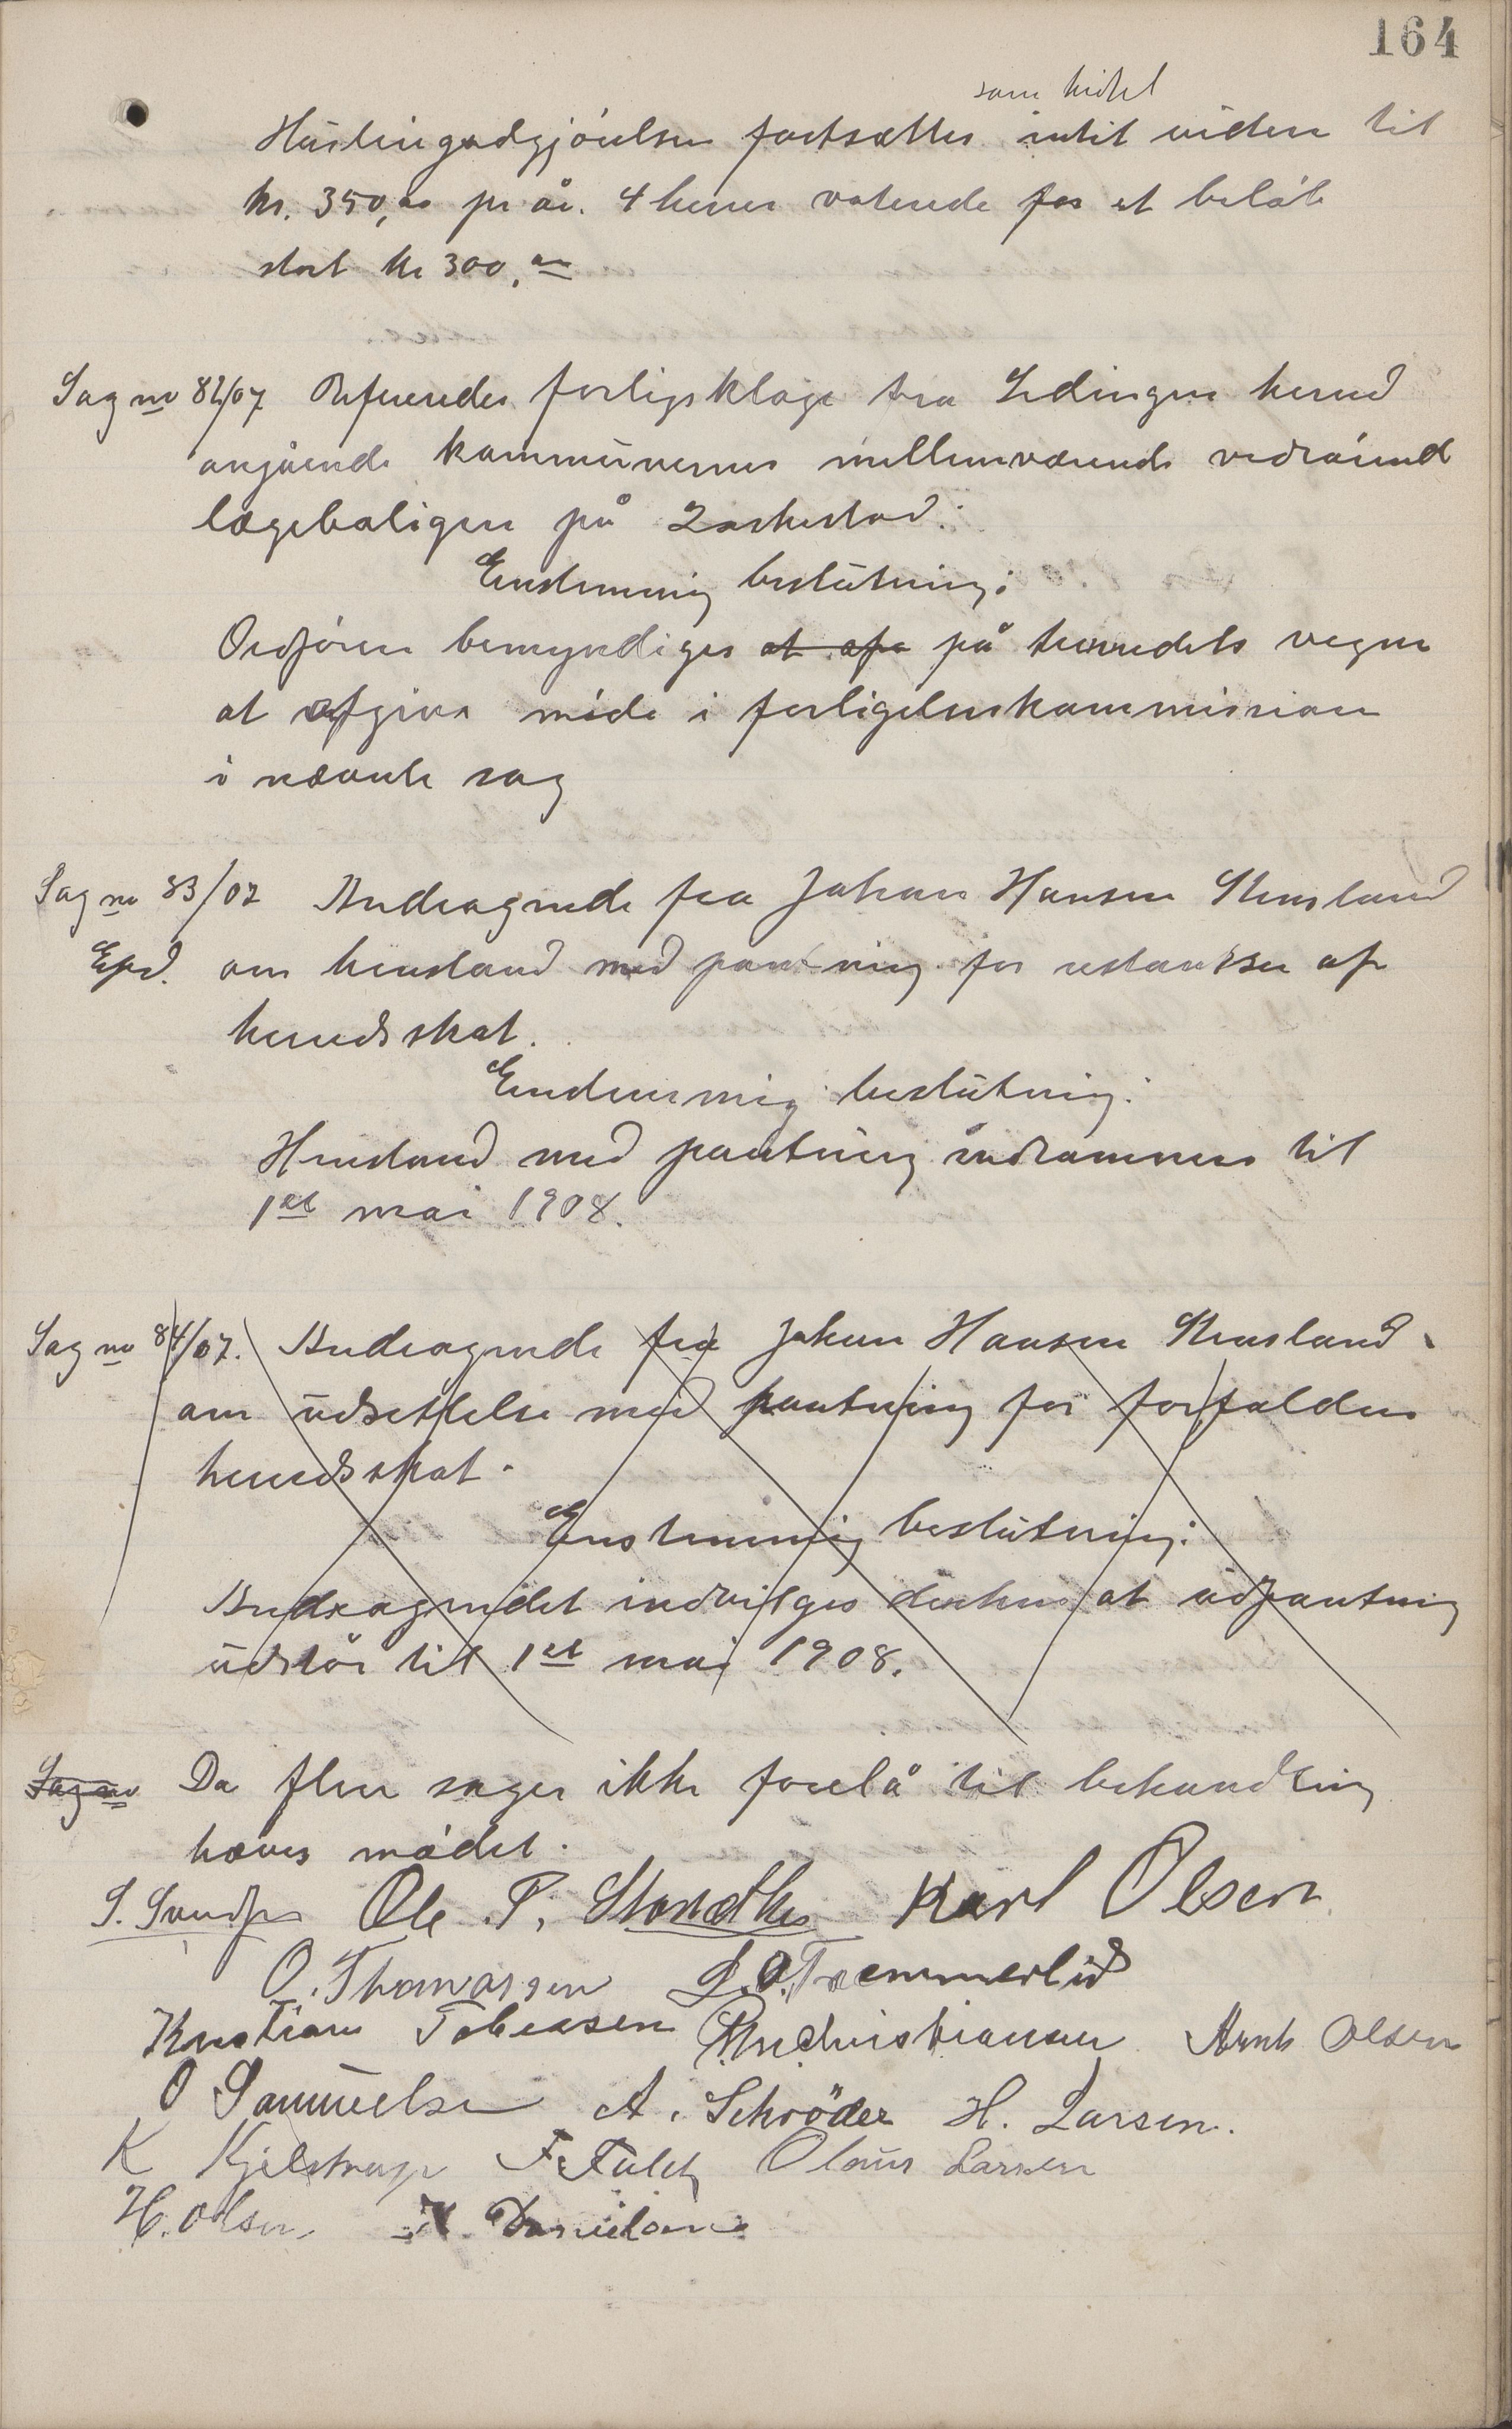 164
som hidtil
Huslingodgjörelsen fortsættes intil videre til
kr. 350,00 pr år. 4 herrer voterede for et beløb
stort kr 300,00
Sag no 82/07 Refereredes forligsklage fra Lødingen herred
angående kommunernes mellemværende vedrörend
lægeboligen på
Enstemmig beslutning:
Ordføreren bemyndiges at afg på herredets vegne
at afgive möde i forligelseskommission
i nævnte sag
Sag no 83/07 Andragende fra Johan Hansen Stensland
Expd. om henstand med pantning for restancer af
herredsskat.
Enstemmig beslutning:
Henstand med pantning indrømmes til
1st mai 1908.
Sag no 84/07. Andragende fra Johan Hansen Stensland
om udsettelse med pantning for forfalden
herredsskat.
Enstemmig beslutning:
Andragendet indvilges derhen at udpantning
udstår til 1st mai 1908.
Sag no Da flere sager ikke forelå til behandling
hæves mödet.
Ole P. Karl Olsen
O. Thomassen L. O. Træmmerlid
Kristian Tobiassen Christiansen Arnt Olsen
O Samuelsen A. Schrøder H. Larsen.
K Kjelstrup F. Falch Olaus Larsen
H. Olsen K Danielsen